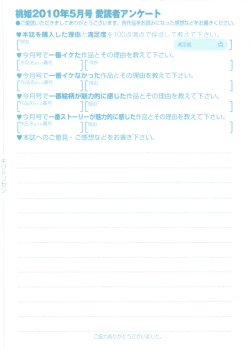 桃姫2010年5月号 愛読者アンケート
●ご愛読いただきましてありがとうございます。各作品をお読みになった感想などをお書きください。
♥本誌を購入した理由と満足度を100点満点で採点して教えて下さい。
満足度 点
♥今月号で一番イケた作品とその理由を教えて下さい。
♥今月号で一番イケなかった作品とその理由を教えて下さい。
♥今月号で一番絵柄が魅力的に感じた作品とその理由を教えて下さい。
♥今月号で一番ストーリーが魅力的に感じた作品とその理由を教えて下さい。
♥本誌へのご意見・ご感想などをお書き下さい。
キリトリセン
ご協力ありがとうございました。